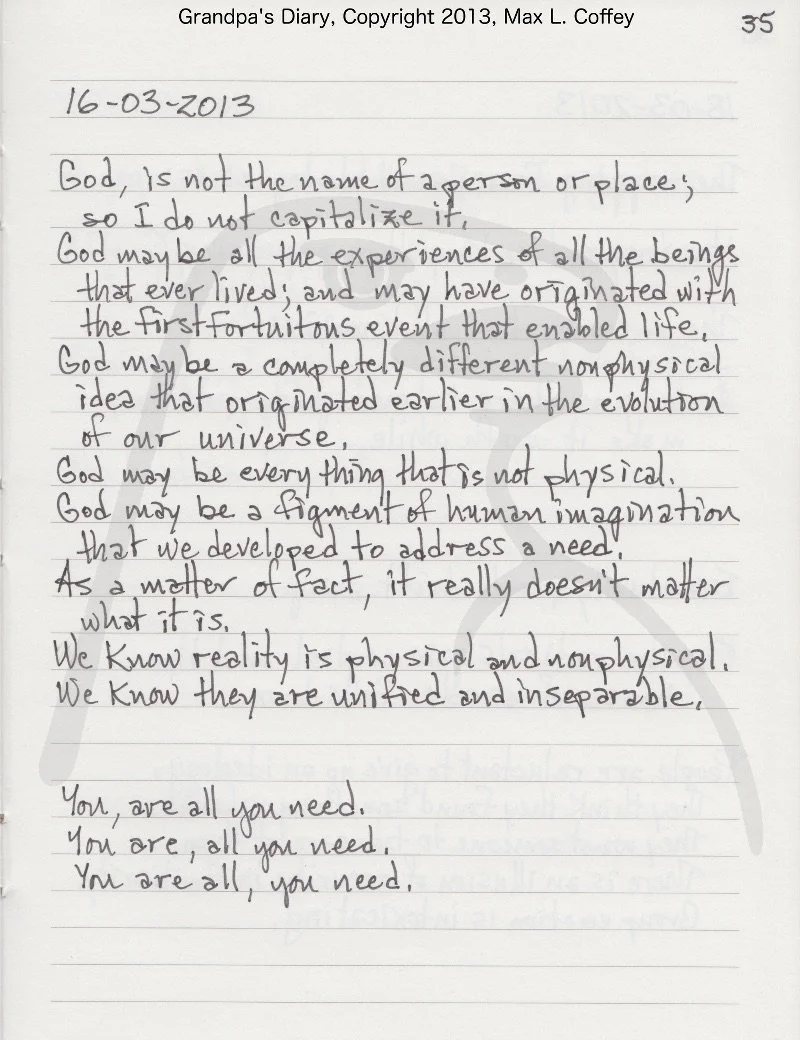 Grandpa's Diary, Copyright 2013, Max L. Coffey
35
16-03-2013
God, is not the name of a person or place;
so I do not capitalize it.
God may be all the experiences of all the beings
that ever lived; and may have originated with
the first fortuitous event that enabled life.
God may be a completely different nonphysical
idea that originated earlier in the evolution
of our universe.
God may be every thing that is not physical.
God may be a figment of human imagination
that we developed to address a need.
As a matter of fact, it really doesn't matter
what it is.
We Know reality is physical and nonphysical.
We Know they are unified and inseparable.
You, are all you need.
You are, all you need.
You are all, you need.